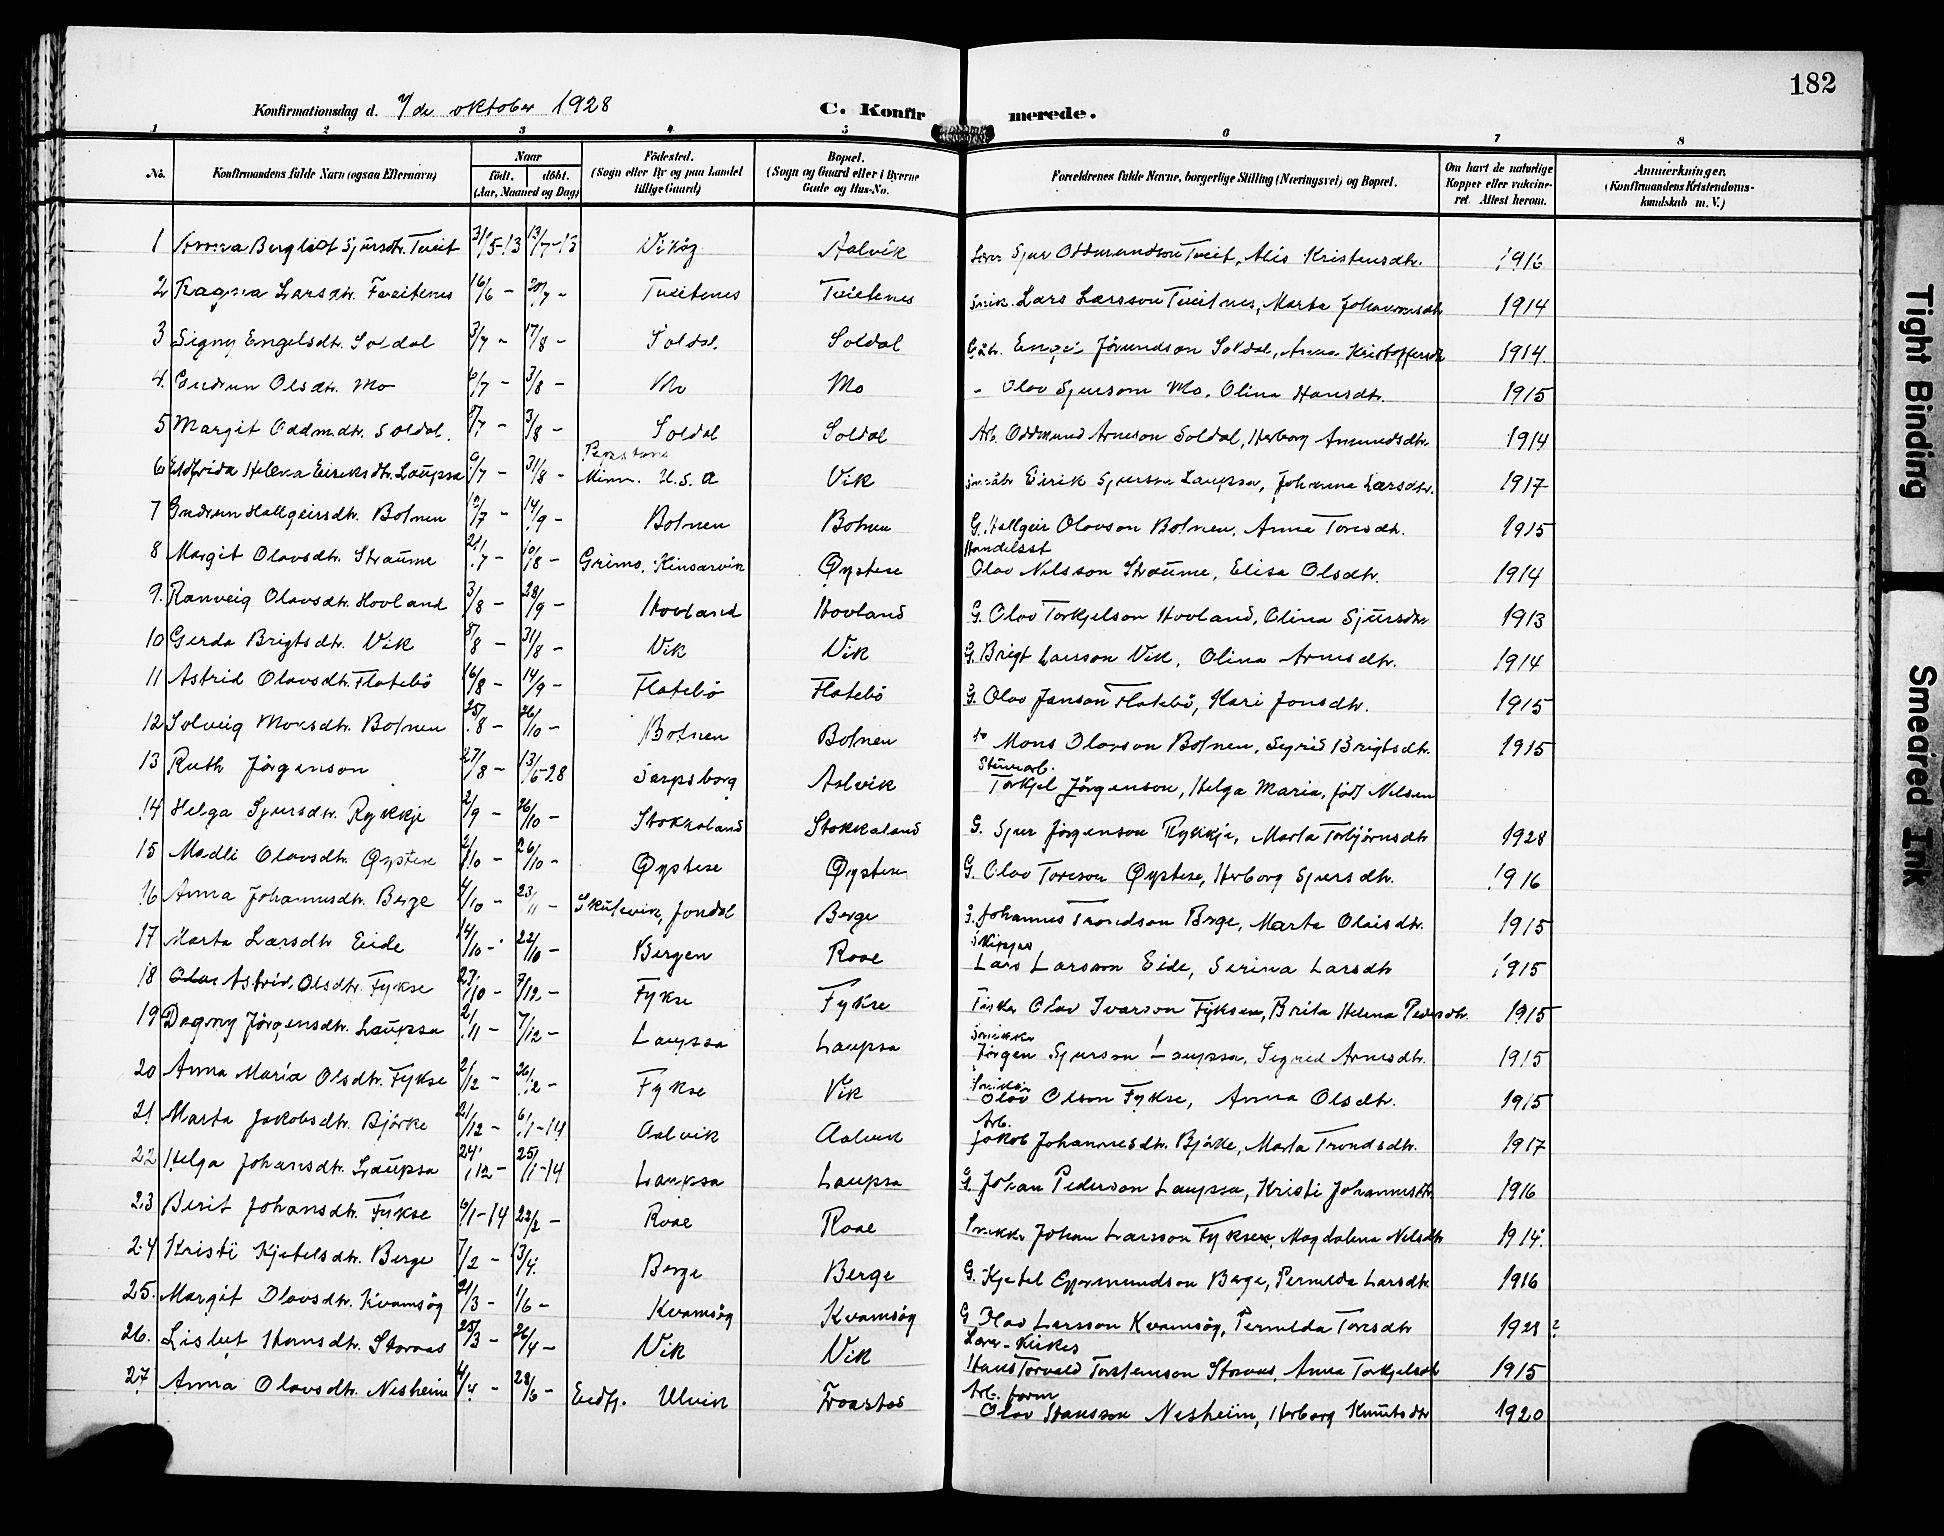 182
Konfirmationsdag d. 7/de oktober 1928 C. Konfirmerede.
1 2 3 4 5 6 7 8
No. Konfirmandens fulde Navn (ogsaa Efternavn) Naar födt. döbt. (Aar, Maaned og Dag) Födested. (Sogn eller By og paa Landet tillige Gaard) Bopæl. (Sogn og Gaard eller i Byerne Gade og Hus-No. Forældrenes fulde Navne, borgerlige Stilling (Næringsvei) og Bopæl. Om havt de naturlige Kopper eller vaksineret. Attest herom. Anmærkninger. (Konfirmandens Kristendomskundskab m. V.)
1 Anna Bergliot Sjursdtr. Tveit 31/5-13 13/7-13 Vikøy Aalvik Sjur Oddmundson Tveit, Alis Kristensdtr. 1916
2 Ragna Larsdtr. Tveitenes 16/6 - 20/7 - Tveitenes Tveitenes Snik. Lars Larsson Tveitnes, Marta Johannesdtr 1914
3 Signy Engelsdtr. Soldal 3/7 - 17/8 - Soldal Soldal Gbr. Engel Jörundson Soldal, Anna Kristoffersdtr 1914.
4. Gudrun Olsdtr. Mo 6/7 - 3/8 - Mo Mo - Olav Sjursson Mo, Olina Hansdtr. 1915
5 Margit Oddm.dtr. Soldal. /7 - 3/8 - Soldal Soldal Arb. Oddmund Arneson Soldal, Herborg Amundsdtr 1914
6 Eldfrida Helena Eiriksdtr. Laupsa 9/7 - 31/8 - Minn. U.S.A Vik Eirik Sjurson Laupsa, Johanna Larsdtr. 1917
7 Gudrun Hallgeirsdtr. Botnen /7 - 14/9 - Botnen Botnen G. Hallgeir Olavson Botnen, Anna Toresdtr. 1915
8 Margit Olavsdtr. Straume 21/7 - 10/8 - Grimo, Kinsarvik Øystese Handelsst Olav Nilsson Straume, Elisa Olsdtr. 1914
9. Ranveig Olavsdtr. Hovland 3/8 - 28/9 - Hovland Hovland G. Olav Torkjelson Hovland, Olina Sjursdtr 1913
10 Gerda Brigtsdtr. Vik /8 - 31/8 - Vik Vik G. Brigt Larsson Vik, Olina Arnesdtr. 1914
11 Astrid Olavsdtr. Flatebö 16/8 - 14/9 - Flatebö Flatebö G. Olav Janson Flatebö, Kari Jonsdtr. 1915
12 Solveig Monsdtr. Botnen 25/8 - 26/10 - Botnen Botnen do Mons Olavson Botnen, Sigrid Brigtsdtr. 1915
13 Ruth Jörgenson 27/8 - 13/5-28 Sarpsborg Aalvik Torkjel Jörgenson, Helga Maria, född Nilsen
14 Helga Sjursdtr. Rykkje 2/9 - 26/10 - Stokkaland Stokkaland G. Sjur Jörgenson Rykkje, Marta Torbjörnsdtr 1928
15 Madli Olavsdtr. Øystese 2/10 - 26/10 - Øystese Øystese G. Olav Toreson Øystese, Herborg Sjursdtr. 1916
16 Anna Johannesdtr. Berge 4/10 - 23/11 - Skutevik, Jondal Berge G. Johannes Trondson Berge, Marta Olaisdtr. 1915
17 Marta Larsdtr Eide 14/10 - 22/10 - Bergen Roae Skippar Lars Larsson Eide, Serina Larsdtr 1915
18 Olav Astrid Olsdtr. Fykse 27/10 - 7/12 - Fykse Fykse Fisker Olav Ivarson Fyksen, Brita Helena Pedersdtr. 1915
19 Dagny Jörgensdtr. Laupsa 2/11 - 7/12 - Laupsa Laupsa Snikkr Jörgen Sjurson Laupsa, Sigrid Arnesdtr. 1915
20 Anna Maria Olsdtr. Fykse 2/12 - 26/12 - Fykse Vik Olav Olson Fykse, Anna Olsdtr. 1915
21 Marta Jakobsdtr. Björke 21/12 - 6/1-14 Aalvik Aalvik Arb. Jakob Johannesdtr. Björke, Marta Trondsdtr. 1917
22 Helga Johansdtr. Laupsa 24/12 - 25/1-14 Laupsa Laupsa G. Johan Pederson Laupsa, Kristi Johannesdtr 1916
23 Berit Johansdtr. Fykse 6/1-14 22/2 - Roae Roae Snikkr Johan Larsson Fyksen, Magdalena Nilsdtr 1914.
24 Kristi Kjetelsdtr. Berge 7/2 - 13/4. Berge Berge G. Kjetel Gjermundson Berge, Pernilda Larsdtr. 1916
25. Margit Olavsdtr. Kvamsøy 21/3 - 1/6 - Kvamsøy Kvamsøy G Olav Larsson Kvamsøy, Pernilda Toresdtr 1928?
26. Lisbet Hansdtr. Storaas 25/3 - 26/4 - Vik Vik Lærer - Kirkes Hans Torvald Torstenson Storaas, Anna Torkjelsdtr 1915
27 Anna Olavsdtr. Nesheim 4/4 - 28/6 - Eidfj. Ulvik Froastad Arb. form Olav Hansson Nesheim, Herborg Knutsdtr 1920
Tight Binding
Smeared Ink